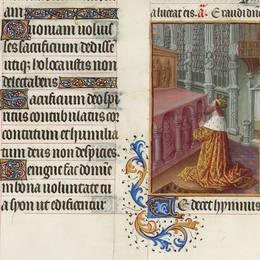 am
Quoniam voluis
ses sacrificium dedisse
utiqz holocaustis non
delectaberis
Sacrificium deo spi
ritus contribulatus cor
contritum et humilia
tum deus non despicies
Benigne fac domine
in bona voluntate tu
a syon ut edificentur
a luceat eis. a. Exaudi dne
Te decet hymnus